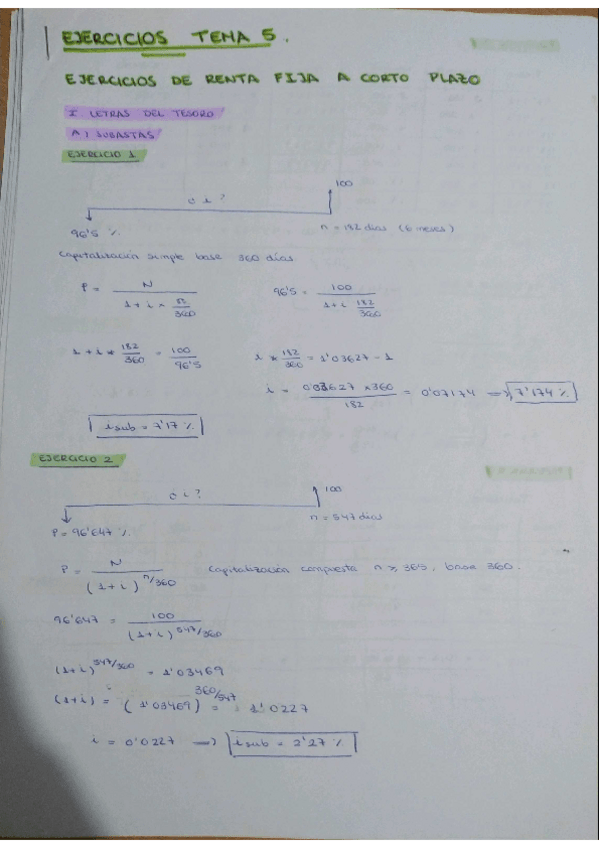 EJERCICIOS TEMA 5.
EJERCICIOS DE RENTA FIJA A CORTO PLAZO
I LETRAS DEL TESORO
A) SUBASTAS
EJERCICIO 1
100
¿i?
96'5 %
n = 182 días (6 meses)
Capitalización simple base 360 días
P = N / (1 + i × n/360)
96'5 = 100 / (1 + i 182/360)
1 + i * 182/360 = 100 / 96'5
i * 182/360 = 1'03627 - 1
i = 0'03627 × 360 / 182 = 0'07174 ⟹ 7'174 %
i sub = 7'17 %
EJERCICIO 2
100
¿i?
n = 547 días
P = 96'647 %
P = N / (1+i)^n/360
Capitalización compuesta n ≥ 365, base 360.
96'647 = 100 / (1+i)^547/360
(1+i)^547/360 = 1'03469
(1+i) = (1'03469)^360/547 = 1'0227
i = 0'0227 ⟹ i sub = 2'27 %